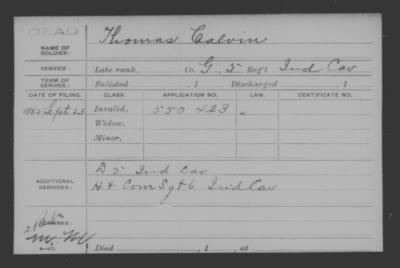 DEAD
NAME OF SOLDIER: Thomas Calvin
SERVICE: Late rank, Co. G, 5 Reg't Ind Cav
TERM OF SERVICE: Enlisted , 1 Discharged , 1
DATE OF FILING. CLASS. APPLICATION NO. CERTIFICATE NO.
1882 Sept 23 Invalid, 550 423 "
Widow,
Minor,
ADDITIONAL SERVICES: D 5 Ind Cav
H + Com Sgt 6 Ind Cav
REMARKS:
Died , 1 , at